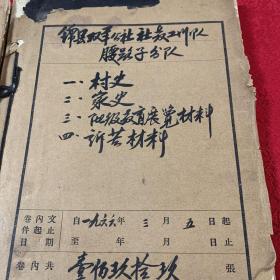 锦县双羊公社社教工作队
腰路子分队
一、村史
二、家史
三、阶级教育展览材料
四、诉苦材料
卷内文件起止日期
自一九六六年三月五日起
至 年 月 日止
卷内共 壹佰玖拾玖 張